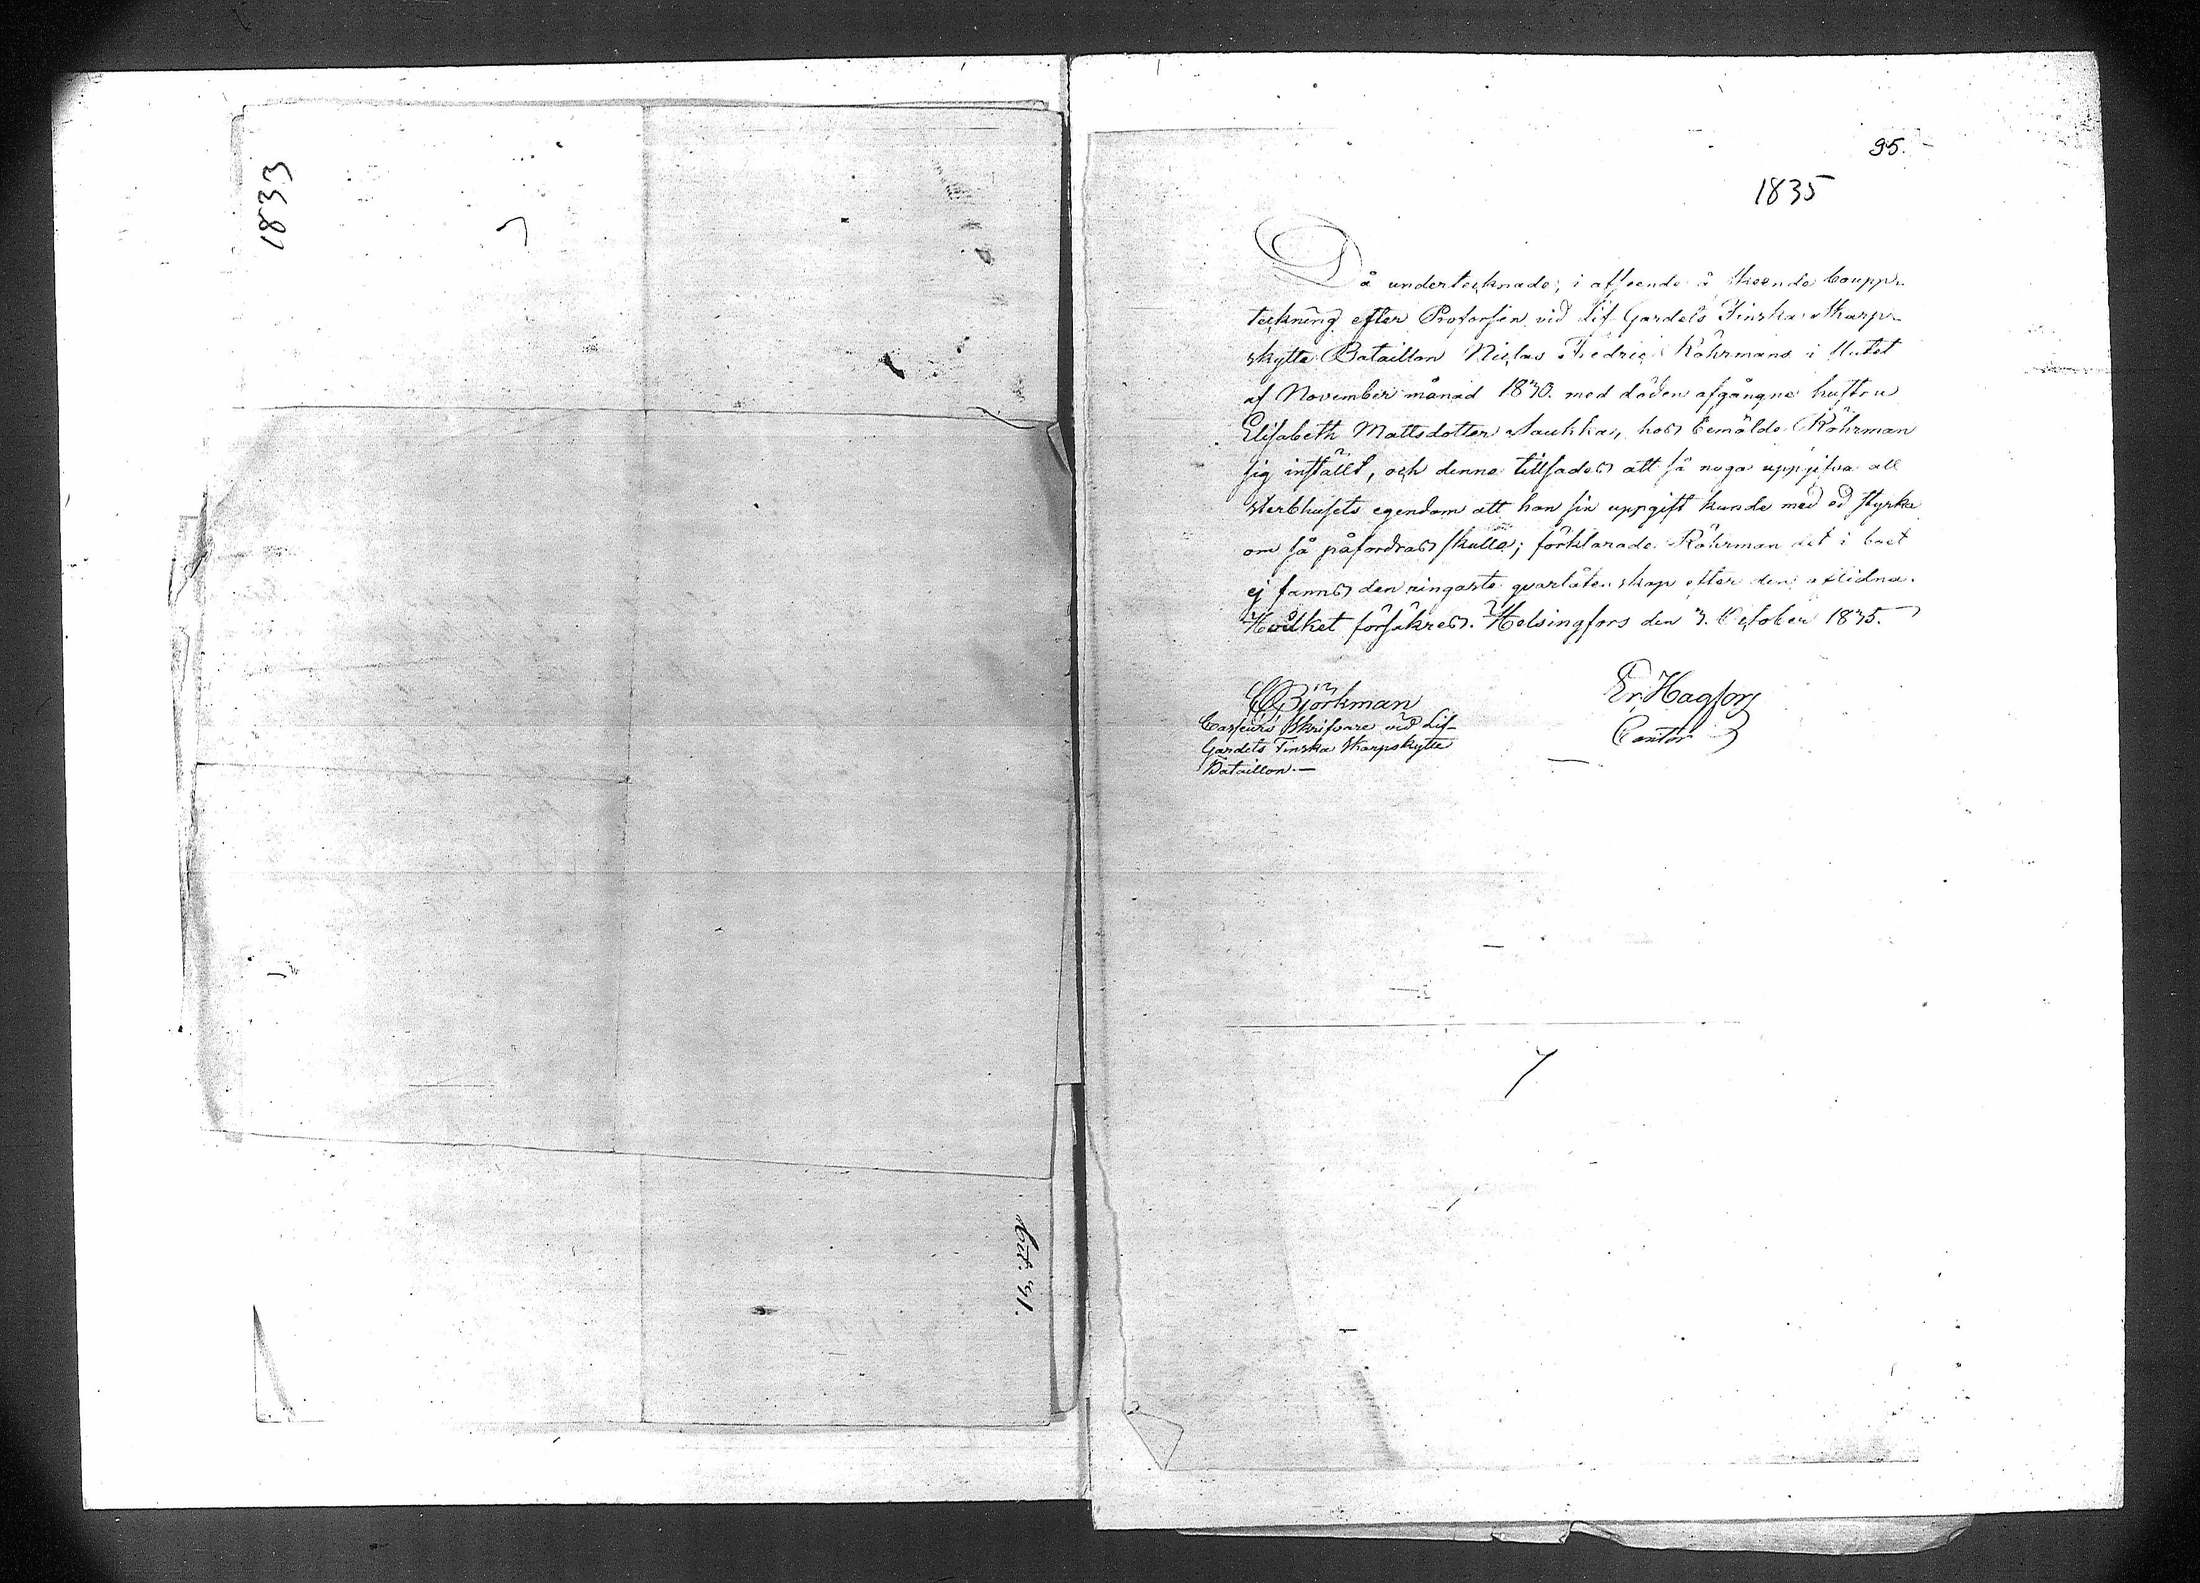 1833
95.
1835
Då undertecknade, i afseende å skeende Boupp-
teckning efter Profossen vid Lif Gardets Finska Skarp-
skytte Bataillon Niclas Fredric Röhrmans i slutet
af November månad 1830. med döden afgångne hustru
Elisabeth Mattsdotter Saukka, hos bemälde Röhrman
sig inställt, och denne tillsades att så noga uppgifva all
sterbhusets egendom att han sin uppgift kunde med ed styrka
om så påfordras skulle; förklarade Röhrman det i boet
ej fanns den ringaste qvarlåtenskap efter den aflidna.
Hvilket försäkres. Helsingfors den 3. October 1835.
Björkman
Er. Hagfors
Skrifvare vid Lif-
Cantor
Gardets Finska Skarpskytte
Bataillon.—